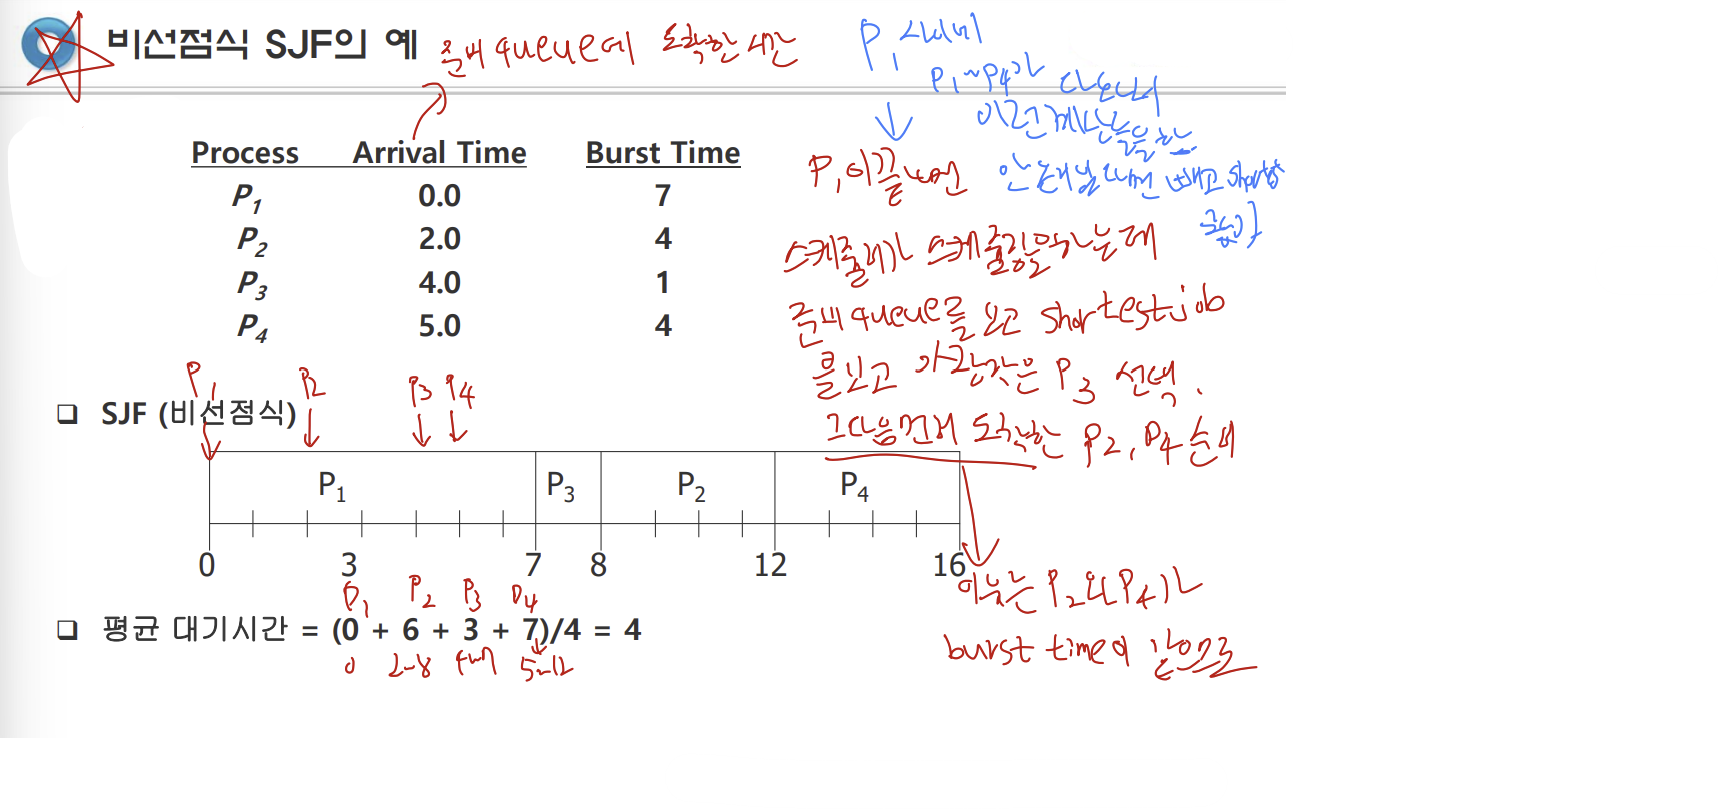 비선점식 SJF의 예
준비 queue에 도착한 시간
P1 시비네
P1~P4가 다
Process Arrival Time Burst Time
P1 0.0 7
P2 2.0 4
P3 4.0 1
P4 5.0 4
P1이 끝나면
안 빼고 short
스케줄러가 스케줄링을 하는데
준비 queue를 보고 shortest job
을 보고 가장 작은 P3 선택.
그다음 먼저 도착한 P2, P4 순서
P1 P2 P3 P4
SJF (비선점식)
P1 P3 P2 P4
0 3 7 8 12 16
이유는 P2와 P4가
burst time이 같으므로
P1 P2 P3 P4
평균 대기시간 = (0 + 6 + 3 + 7)/4 = 4
0 2~8 4~7 5~12